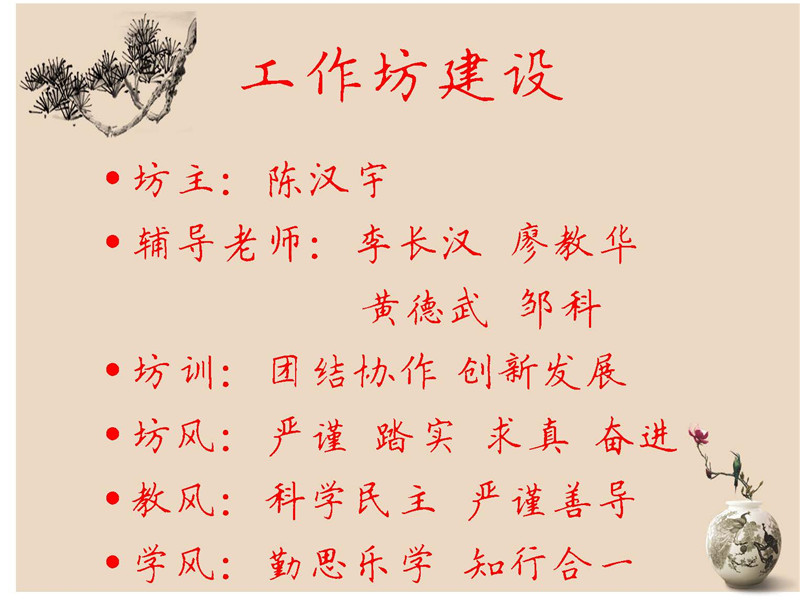 工作坊建设
•坊主：陈汉宇
•辅导老师：李长汉 廖教华
黄德武 邹科
•坊训：团结协作 创新发展
•坊风：严谨 踏实 求真 奋进
•教风：科学民主 严谨善导
•学风：勤思乐学 知行合一